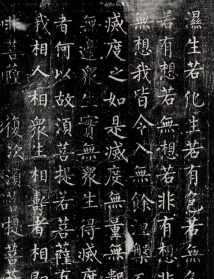 濕生若化生若有色若無
若有想若無想若非有想非
無想我皆令入無餘涅槃
滅度之如是滅度無量無數
無邊衆生實無衆生得滅度
者何以故須菩提若菩薩有
我相人相衆生相壽者相
非菩薩復次須菩提菩